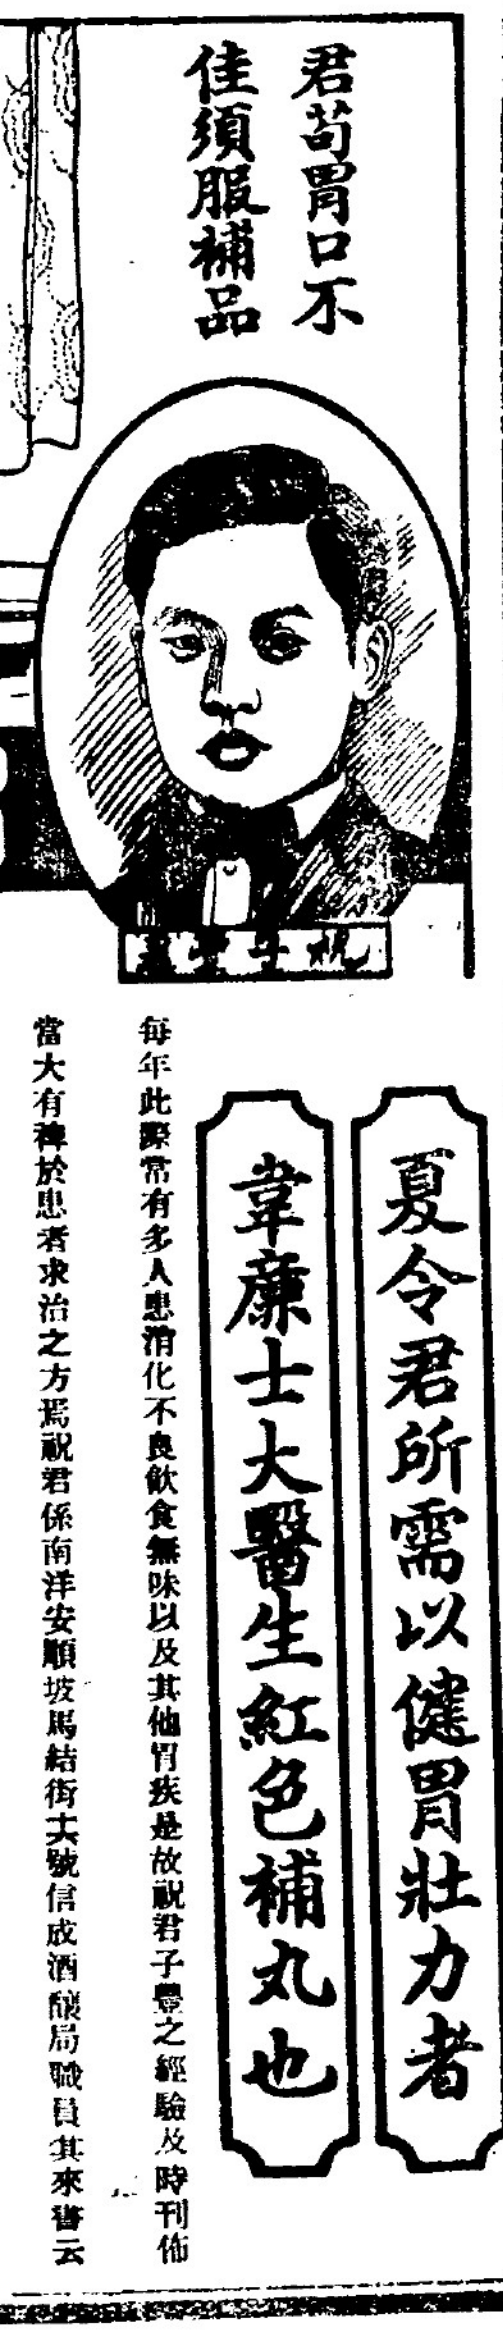 君苟胃口不
佳須服補品
祝子豐君
夏令君所需以健胃壯力者
韋廉士大醫生紅色補丸也
每年此際常有多人患消化不良飲食無味以及其他胃疾是故祝君子豐之經驗及時刊佈
當大有裨於患者求治之方焉祝君係南洋安順坡馬結街六號信成酒釀局職員其來書云